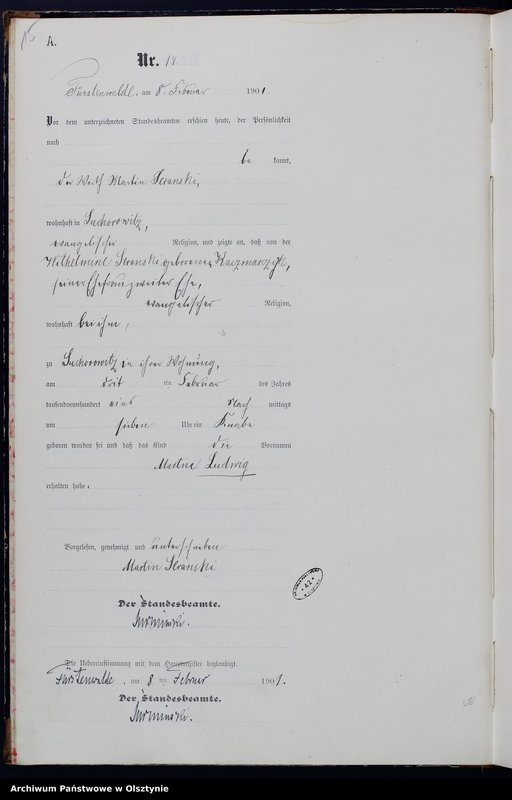 A.
Nr. 14
Fürstenwalde, am 8. Februar 1901.
Vor dem unterzeichneten Standesbeamten erschien heute, der Persönlichkeit
nach
be kannt,
der Wirth Martin
wohnhaft in Suchorowitz,
evangelischer Religion, und zeigte an, daß von der
Wilhelmine geborenen Kaczmarczyk,
seiner Ehefrau zweiter Ehe,
evangelischer Religion,
wohnhaft bei ihm,
zu Suchorowitz in ihrer Wohnung,
am drit ten Februar des Jahres
tausendneunhundert eins Nach mittags
um sieben Uhr ein Knabe
geboren worden sei und daß das Kind die Vornamen
Ludwig
erhalten habe.
Vorgelesen, genehmigt und unterschrieben
Martin
Der Standesbeamte.
Die Uebereinstimmung mit dem Hauptregister beglaubigt.
Fürstenwalde, am 8 ten Februar 1901.
Der Standesbeamte.
Archiwum Państwowe w Olsztynie